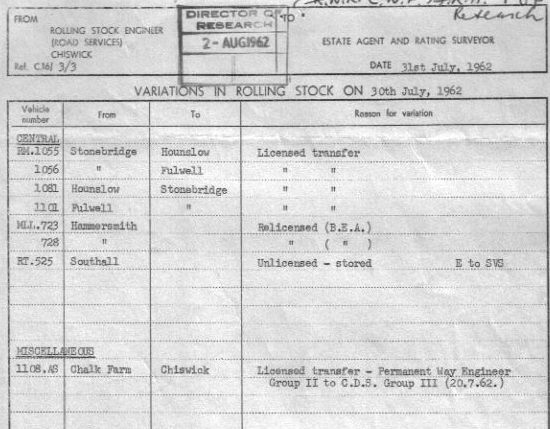 Research
FROM
ROLLING STOCK ENGINEER
(ROAD SERVICES)
CHISWICK
Ref. C.16/ 3/3
DIRECTOR OF
RESEARCH
2 - AUG 1962
TO
ESTATE AGENT AND RATING SURVEYOR
DATE 31st July, 1962
VARIATIONS IN ROLLING STOCK ON 30th July, 1962
Vehicle number From To Reason for variation
CENTRAL
RM.1055 Stonebridge Hounslow Licensed transfer
1056 " Fulwell " "
1081 Hounslow Stonebridge " "
1101 Fulwell " " "
MLL.723 Hammersmith Relicensed (B.E.A.)
728 " " ( " )
RT.525 Southall Unlicensed - stored E to SVS
MISCELLANEOUS
1108.AS Chalk Farm Chiswick Licensed transfer - Permanent Way Engineer
Group II to C.D.S. Group III (20.7.62.)